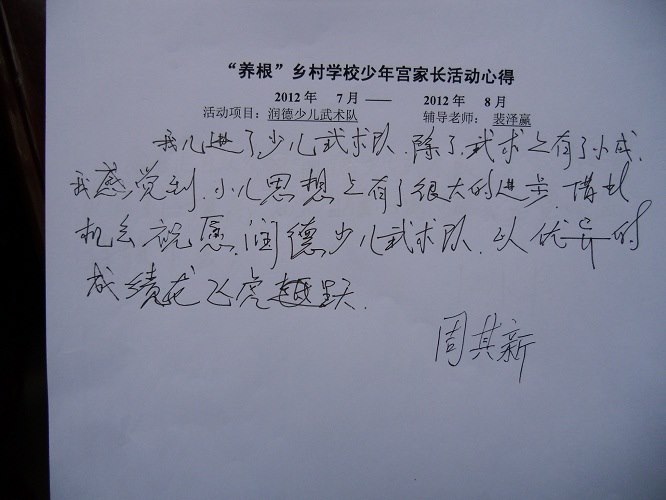 “养根”乡村学校少年宫家长活动心得
2012 年 7 月 —— 2012 年 8 月
活动项目：润德少儿武术队 辅导老师： 裴泽赢
我儿进了少儿武术队，除了武术上有了小成，
我感觉到，小儿思想上有了很大的进步，借此
机会祝愿，润德少儿武术队，以优异的
成绩龙飞虎跃．
周其新